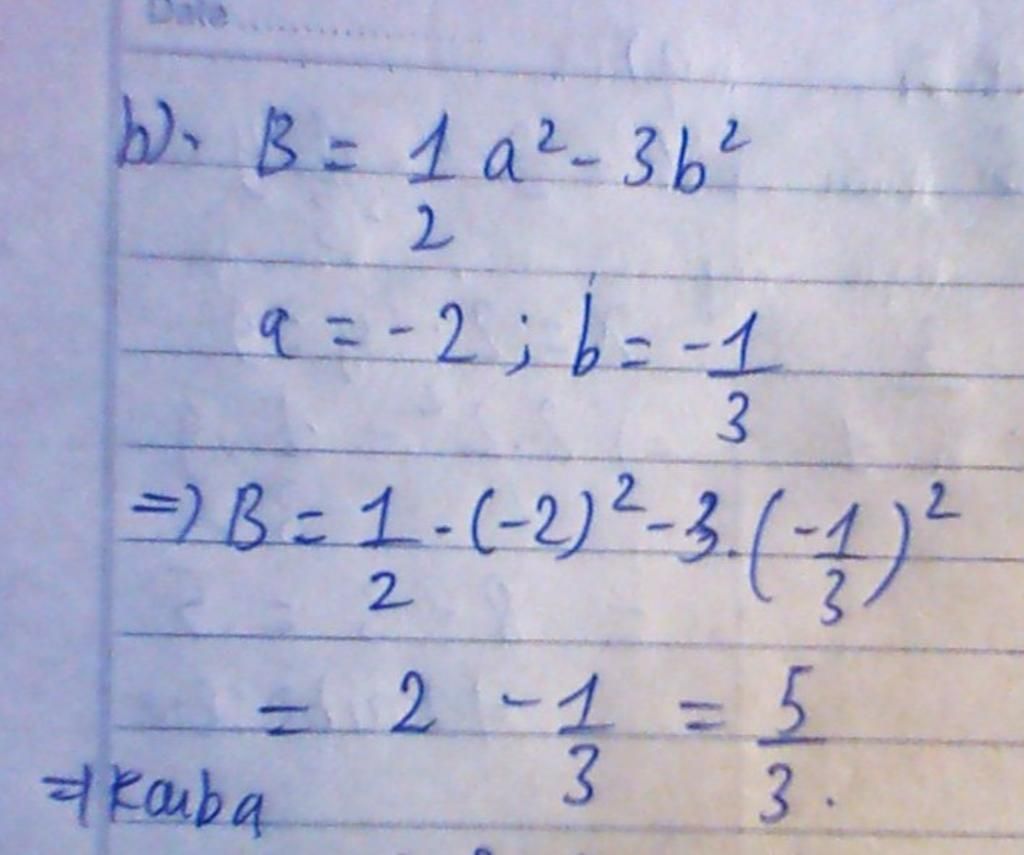 Date
b). B = 1/2 a² - 3b²
a = -2 ; b = -1/3
=> B = 1/2 . (-2)² - 3. (-1/3)²
= 2 - 1/3 = 5/3 .
=>